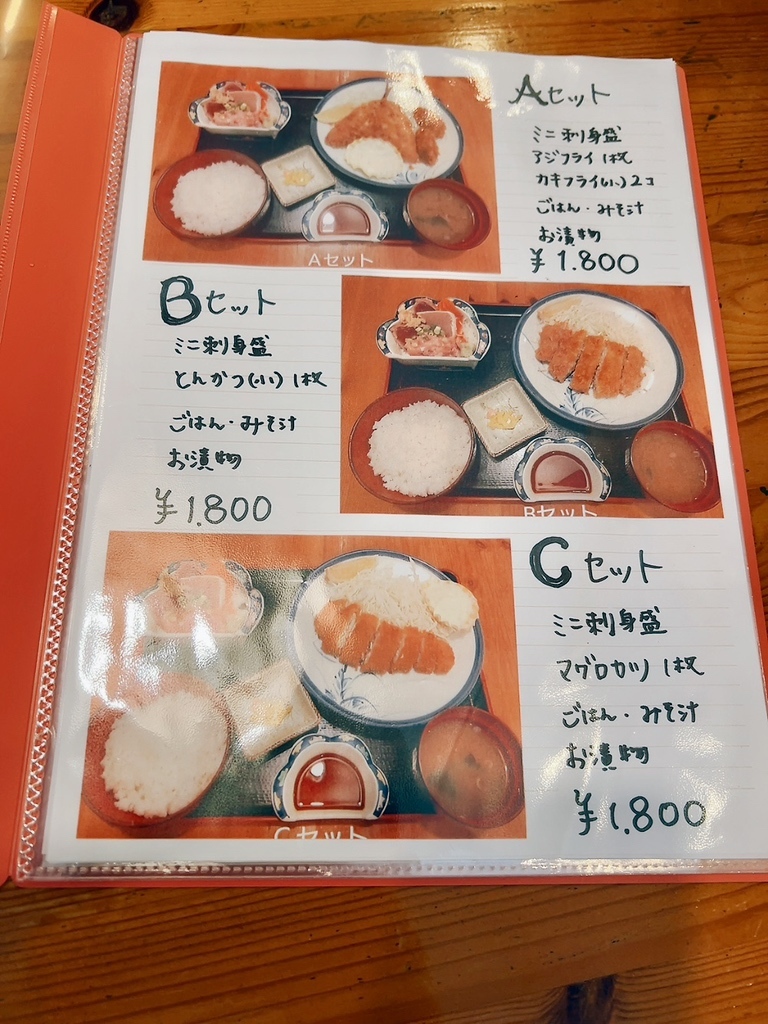 Aセット
ミニ刺身盛
アジフライ 1枚
カキフライ(小) 2コ
ごはん・みそ汁
お漬物
¥1.800
Aセット
Bセット
ミニ刺身盛
とんかつ(小) 1枚
ごはん・みそ汁
お漬物
¥1.800
Bセット
Cセット
ミニ刺身盛
マグロカツ 1枚
ごはん・みそ汁
お漬物
¥1.800
Cセット